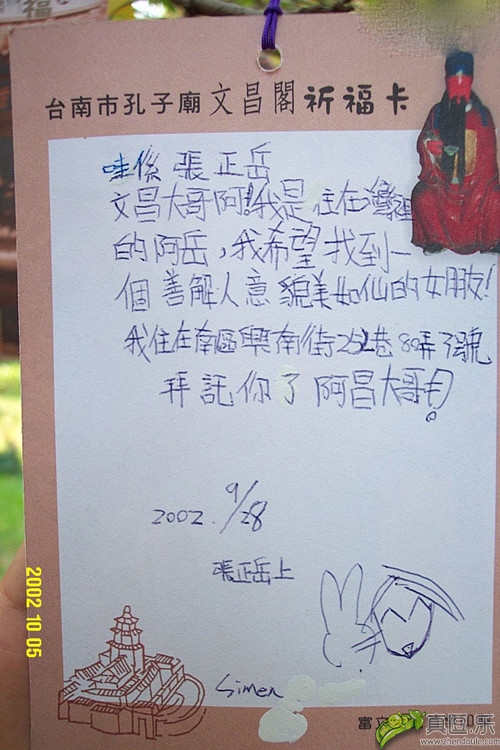 台南市孔子廟文昌閣祈福卡
哇係 張正岳
文昌大哥阿!我是 住在灣裡
的阿岳，我希望找到一
個善解人意 貌美如仙的女朋友!
我住在南區興南街252巷80弄了號
拜託你了 阿昌大哥
2002. 9/28
張正岳上
Simen
2002 10 05
富文
真逗.乐
www.zhendoule.com